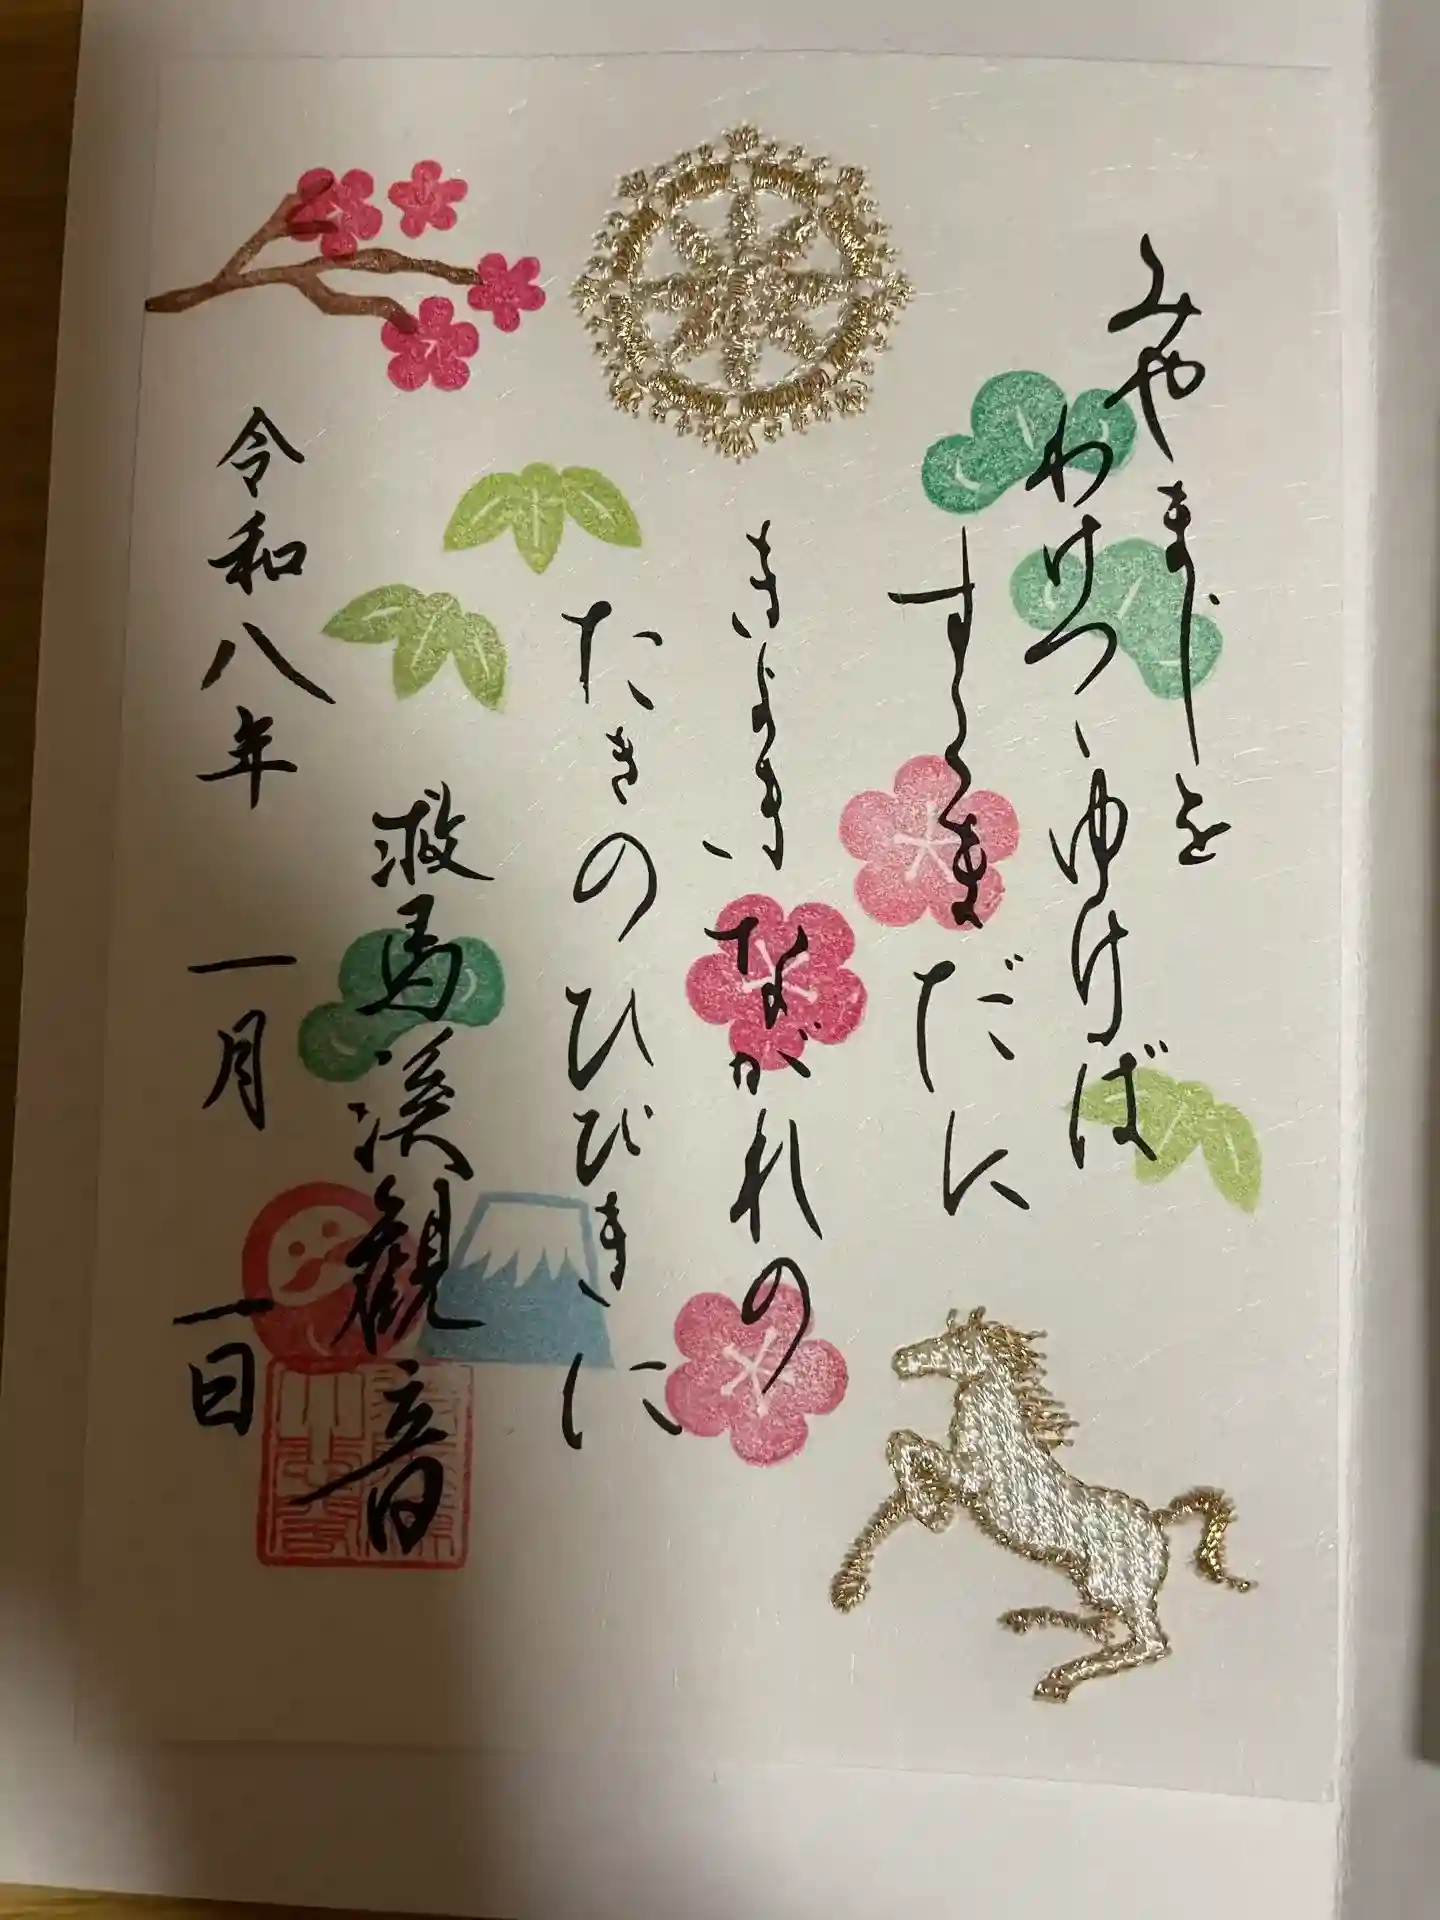 みやまじを
わけつゝゆけば
すくまだに
きよき ながれの
たきのひびきに
救馬溪観音
令和八年 一月 一日